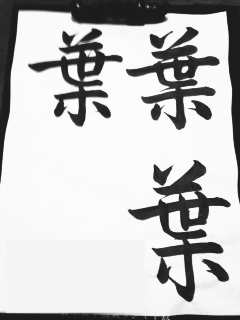 葉
葉
葉